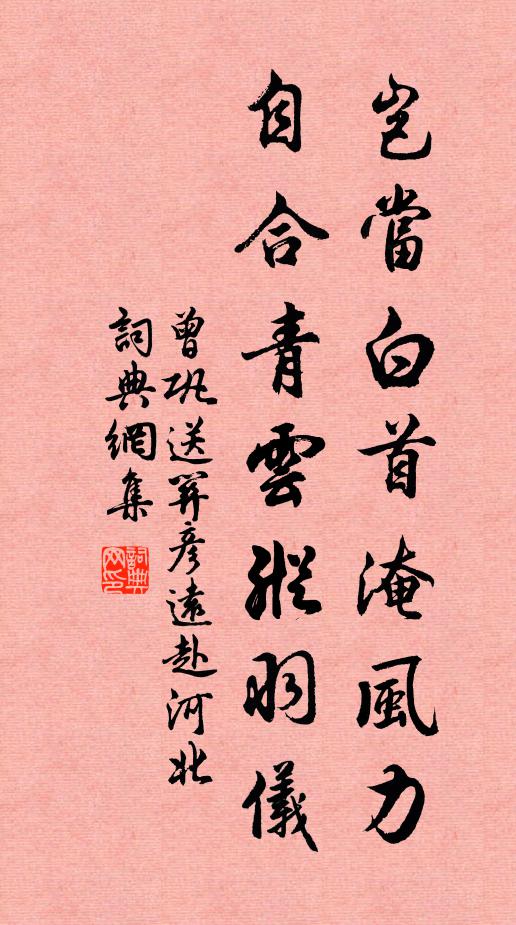 豈當白首淹風力
自合青雲縱羽儀
曾巩送关彥遠赴河北
詞典網集
詞典網印